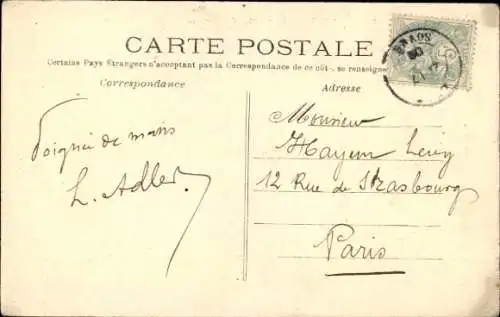 CARTE POSTALE
Certains Pays Étrangers n'acceptant pas la Correspondance de ce côté, se renseigner
Correspondance
Adresse
Poignée de mains
L. Adler
Monsieur
Hayem Levy
12 Rue de Strasbourg
Paris